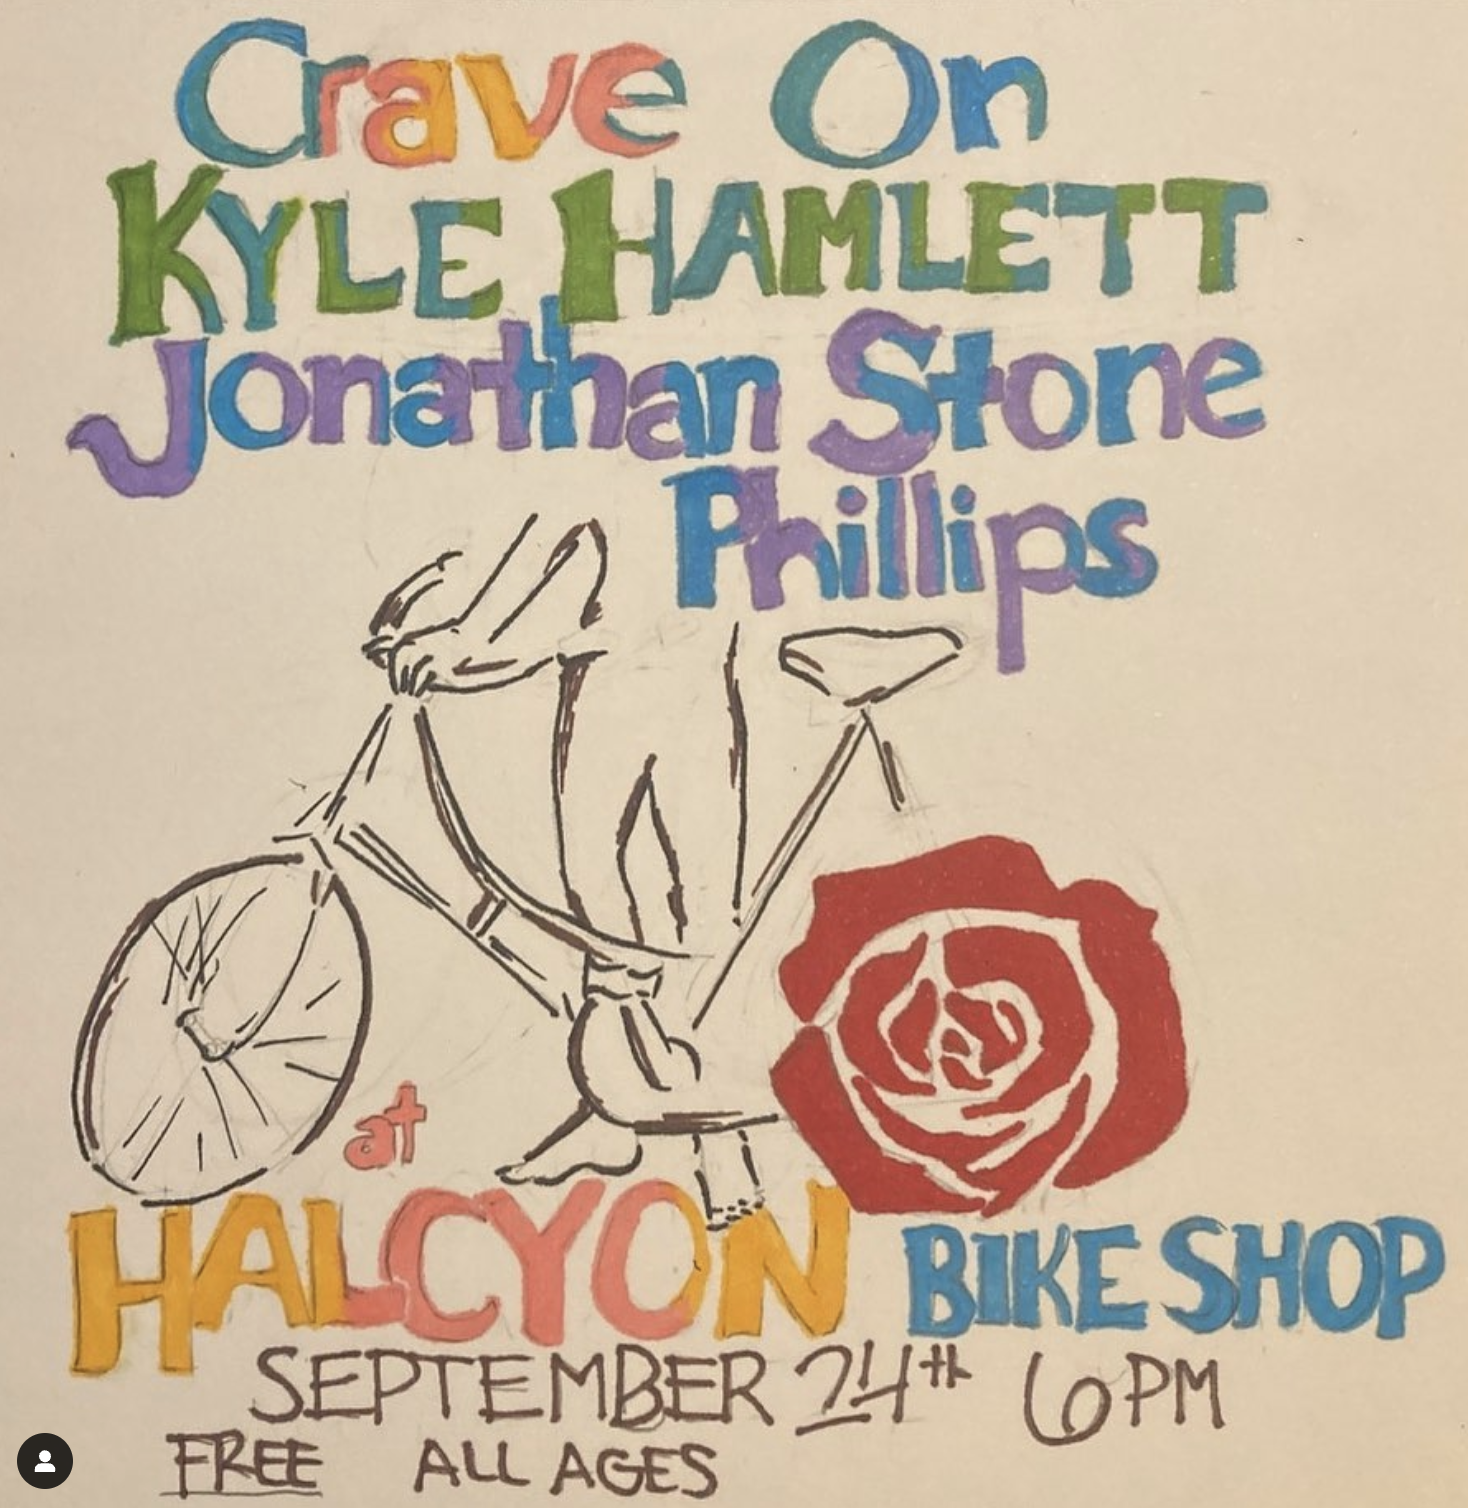 Crave On
KYLE HAMLETT
Jonathan Stone
Phillips
at
HALCYON BIKE SHOP
SEPTEMBER 24th 6PM
FREE ALL AGES